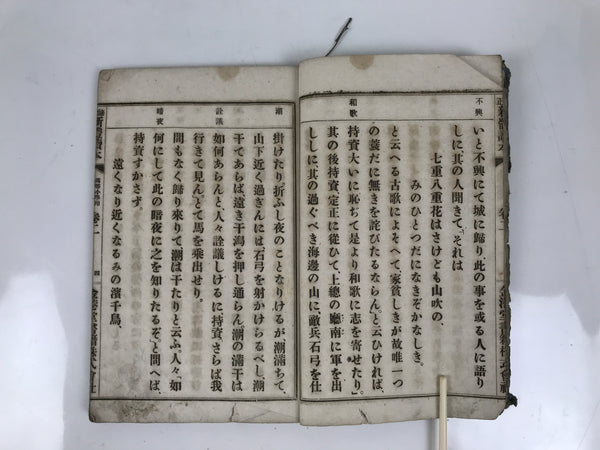 不興
いと不興にて城に歸り、此の事を或る人に語り
しに、其の人聞きて、「それは
七重八重花はさけども山吹の、
みのひとつだになきぞかなしき。
と云へる古歌によそへて、家貧しきが故、唯一つ
の蓑だに無きを詫びたるならん。」と云ひければ、
和歌
持資大いに恥ぢて、是より和歌に志を寄せたり。
其の後持資、定正に從ひて、上總の廳南に軍を出
ししに、其の過ぐべき海邊の山に、敵兵石弓を仕
掛けたり。折ふし夜のことなりけるが、「潮滿ちて、
潮
山下近く過ぎんには、石弓を射かけらるべし。潮
干てあらば、遠き干潟を押し通らん。潮の滿干は
如何あらん」と、人々詮議しけるに、持資さらば我
詮議
行きて見ん」とて、馬を乘出せり。
間もなく歸り來りて、「潮は干たり」と云ふ。人々、「如
何にして此の暗夜に之を知りたるぞ」と問へば、
暗夜
持資すかさず、
遠くなり近くなるみの濱千鳥、
讀本
卷二
四